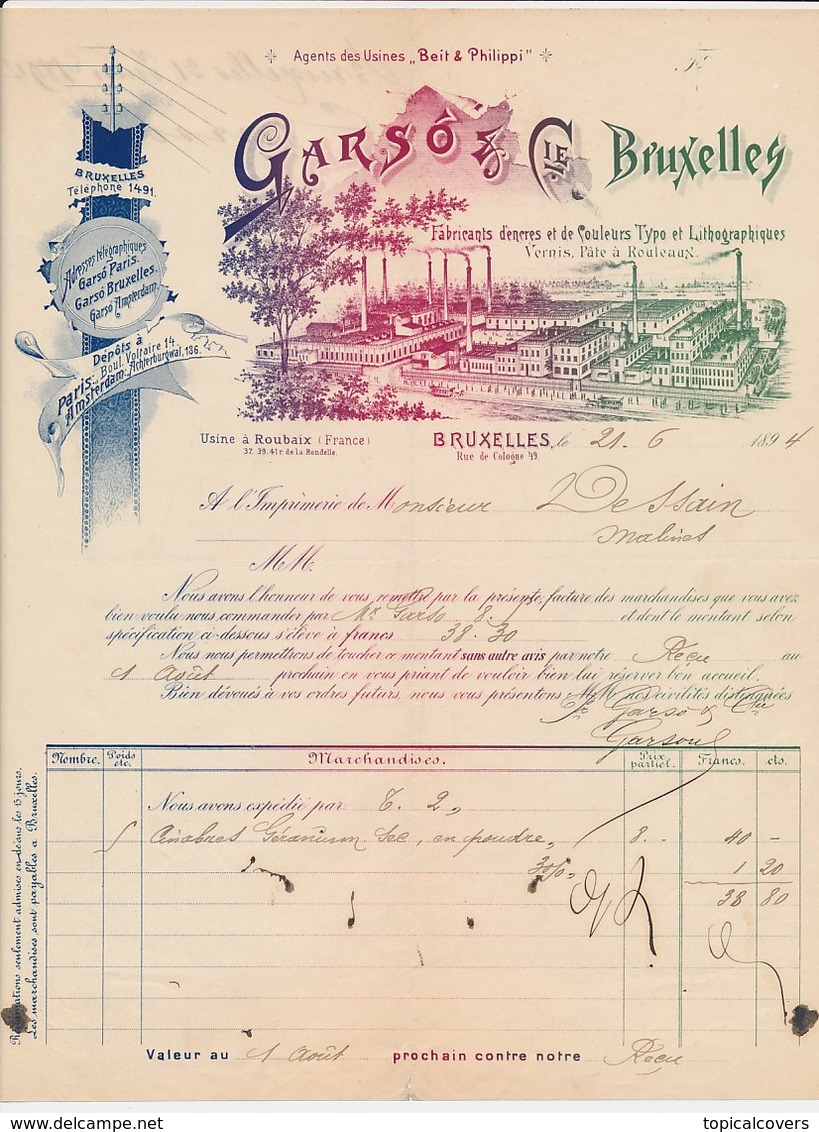 Agents des Usines „Beit & Philippi"
GARSÓ & CIE Bruxelles
Fabricants d'encres et de Couleurs Typo et Lithographiques
Vernis, Pâte à Rouleaux.
BRUXELLES
Téléphone 1491.
Adresses télégraphiques
Garsó Paris.
Garsó Bruxelles.
Garsó Amsterdam.
Dépôts à
Paris. Boul. Voltaire 14.
Amsterdam. Achterburgwal, 136.
Usine à Roubaix (France)
37. 39. 41 r. de la Rondelle.
BRUXELLES, le 21. 6 1894
Rue de Cologne 49.
A l'Imprimerie de Monsieur Dessain
Malines
MM.
Nous avons l'honneur de vous remettre par la présente, facture des marchandises que vous avez
bien voulu nous commander par Mr. Garso 8. et dont le montant selon
spécification ci-dessous s'élève à francs 38.30
Nous nous permettrons de toucher ce montant sans autre avis par notre Reçu au
1 Août prochain en vous priant de vouloir bien lui réserver bon accueil.
Bien dévoués à vos ordres futurs, nous vous présentons MM nos civilités distinguées
Garsó & Cie
Nombre. Poids etc. Marchandises. Prix partiel. Francs. cts.
Nous avons expédié par 2,
5 Cinabres Géranium Sec, en poudre, 8.- 40 -
3 0/0, 1 20
38 80
Réclamations seulement admises en déans les 15 jours.
Les marchandises sont payables a Bruxelles.
Valeur au 1 Août prochain contre notre Reçu
delcampe.net
topicalcovers